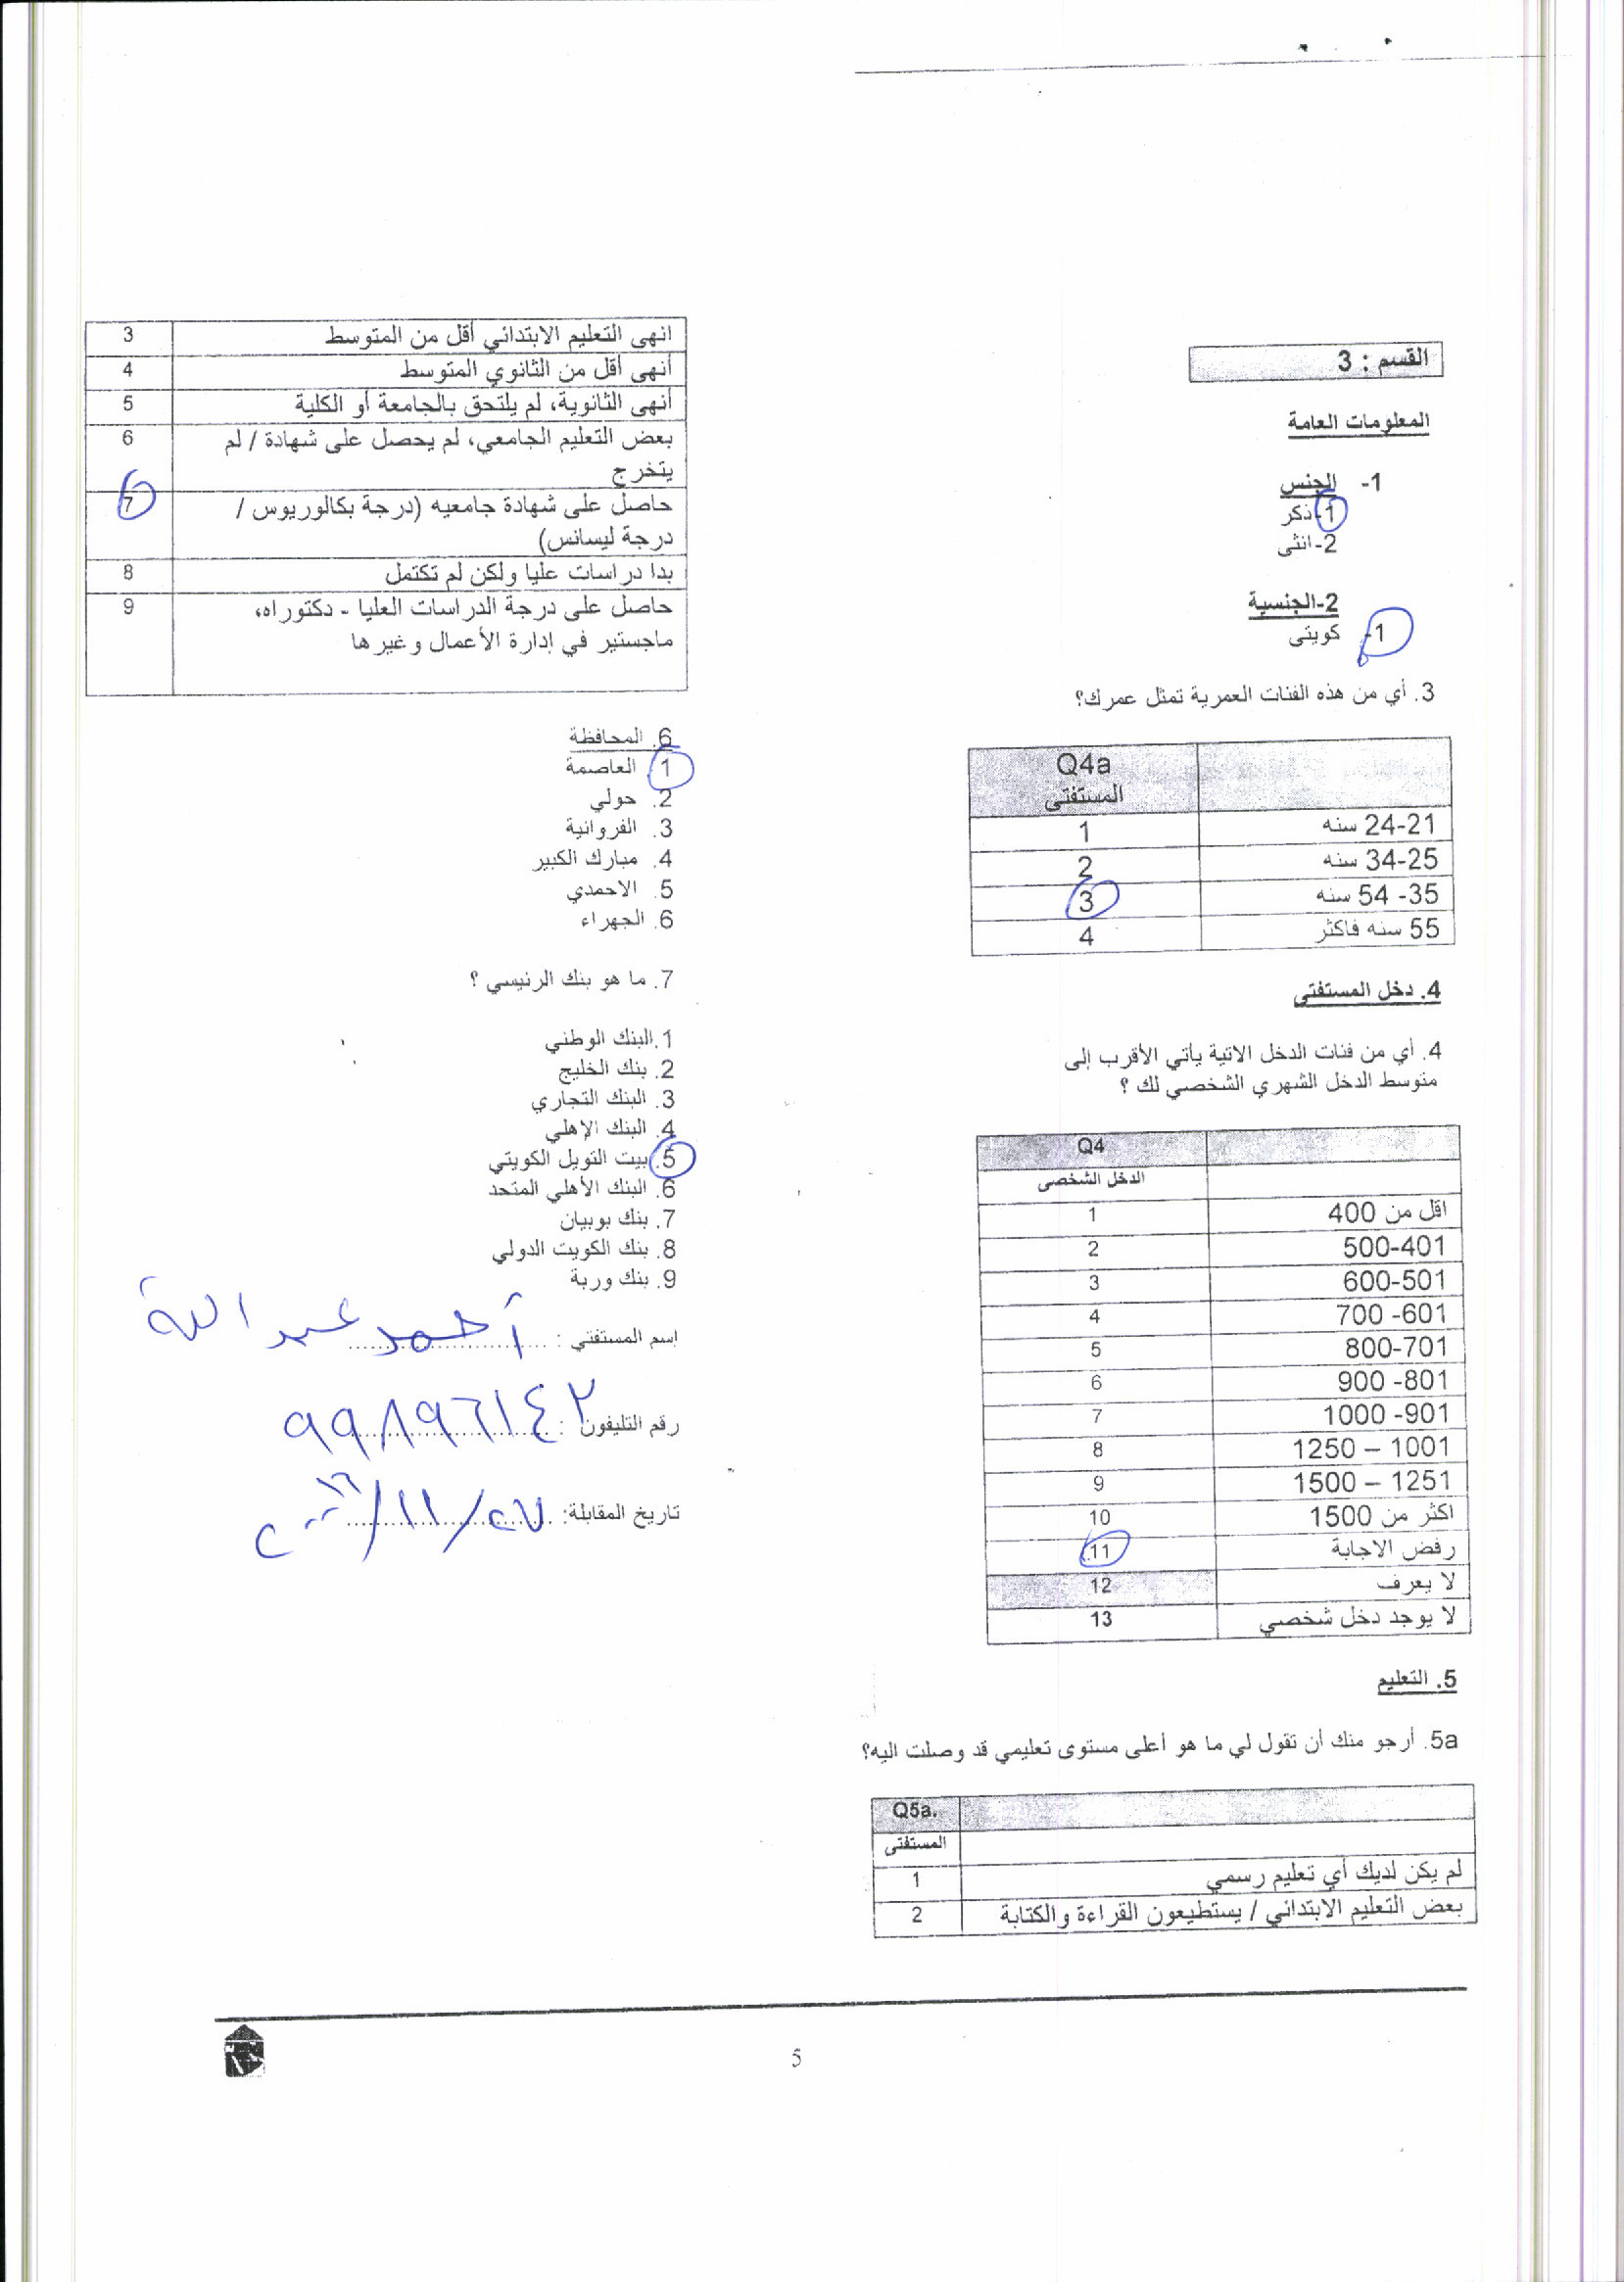 القسم : 3
المعلومات العامة
1- الجنس
1-ذكر
2-انثى
2-الجنسية
1- كويتى
3. أي من هذه الفئات العمرية تمثل عمرك؟
Q4a
المستفتى
24-21 سنه 1
34-25 سنه 2
35- 54 سنه 3
55 سنه فاكثر 4
4. دخل المستفتى
4. أي من فئات الدخل الاتية يأتي الأقرب إلى
متوسط الدخل الشهري الشخصي لك ؟
Q4
الدخل الشخصى
اقل من 400 1
500-401 2
600-501 3
700 -601 4
800-701 5
900 -801 6
1000 -901 7
1250 – 1001 8
1500 – 1251 9
اكثر من 1500 10
رفض الاجابة 11
لا يعرف 12
لا يوجد دخل شخصي 13
5. التعليم
5a. أرجو منك أن تقول لي ما هو أعلى مستوى تعليمي قد وصلت اليه؟
Q5a.
المستفتى
لم يكن لديك أي تعليم رسمي 1
بعض التعليم الابتدائي / يستطيعون القراءة والكتابة 2
انهى التعليم الابتدائي أقل من المتوسط 3
أنهى أقل من الثانوي المتوسط 4
أنهى الثانوية، لم يلتحق بالجامعة أو الكلية 5
بعض التعليم الجامعي، لم يحصل على شهادة / لم 6
يتخرج
حاصل على شهادة جامعيه (درجة بكالوريوس / 7
درجة ليسانس)
بدا دراسات عليا ولكن لم تكتمل 8
حاصل على درجة الدراسات العليا - دكتوراه، 9
ماجستير في إدارة الأعمال وغيرها
6. المحافظة
1. العاصمة
2. حولي
3. الفروانية
4. مبارك الكبير
5. الاحمدي
6. الجهراء
7. ما هو بنك الرئيسي ؟
1.البنك الوطني
2. بنك الخليج
3. البنك التجاري
4. البنك الإهلي
5. بيت التويل الكويتي
6. البنك الأهلي المتحد
7. بنك بوبيان
8. بنك الكويت الدولي
9. بنك وربة
اسم المستفتي : أحمد عبد الله
رقم التليفون : ٩٩٨٩٦١٤٢
تاريخ المقابلة: ٢٧/١١/٢٠١٦
5